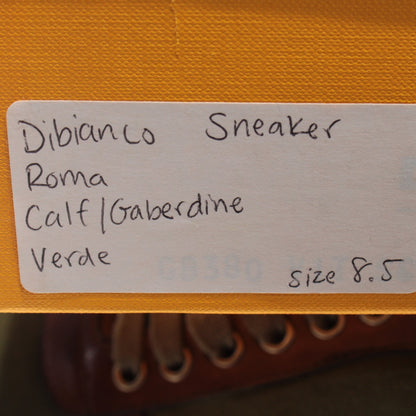 Dibianco Sneaker
Roma
Calf/Gaberdine
Verde
size 8.5